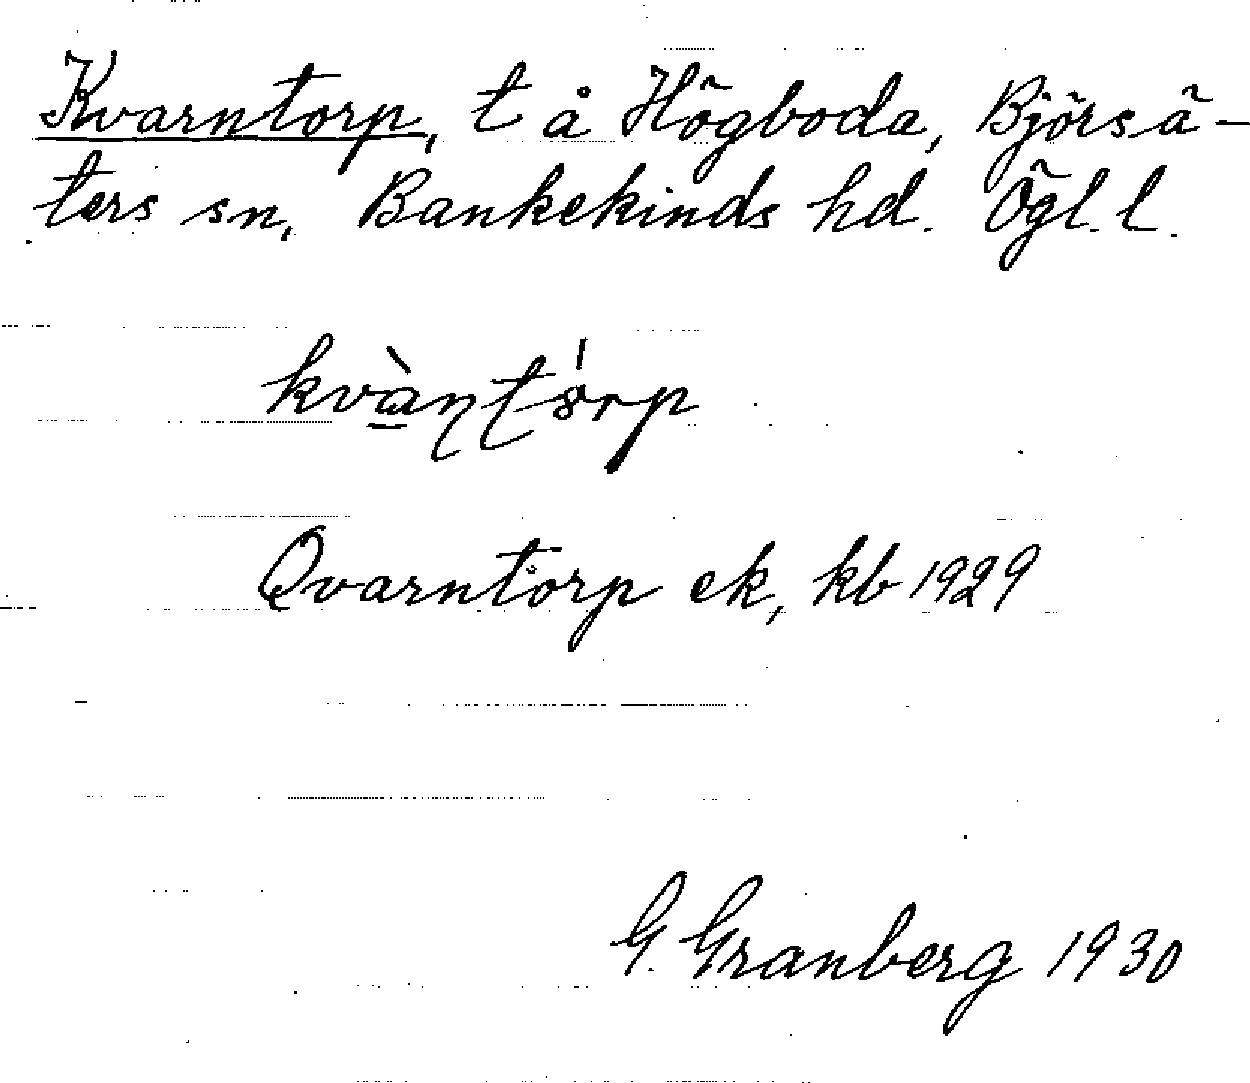 Kvarntorp, t å Högboda, Björsä-
ters sn, Bankekinds hd. Ögl. l.
Qvarntorp ek, kb 1929
G. Granberg 1930